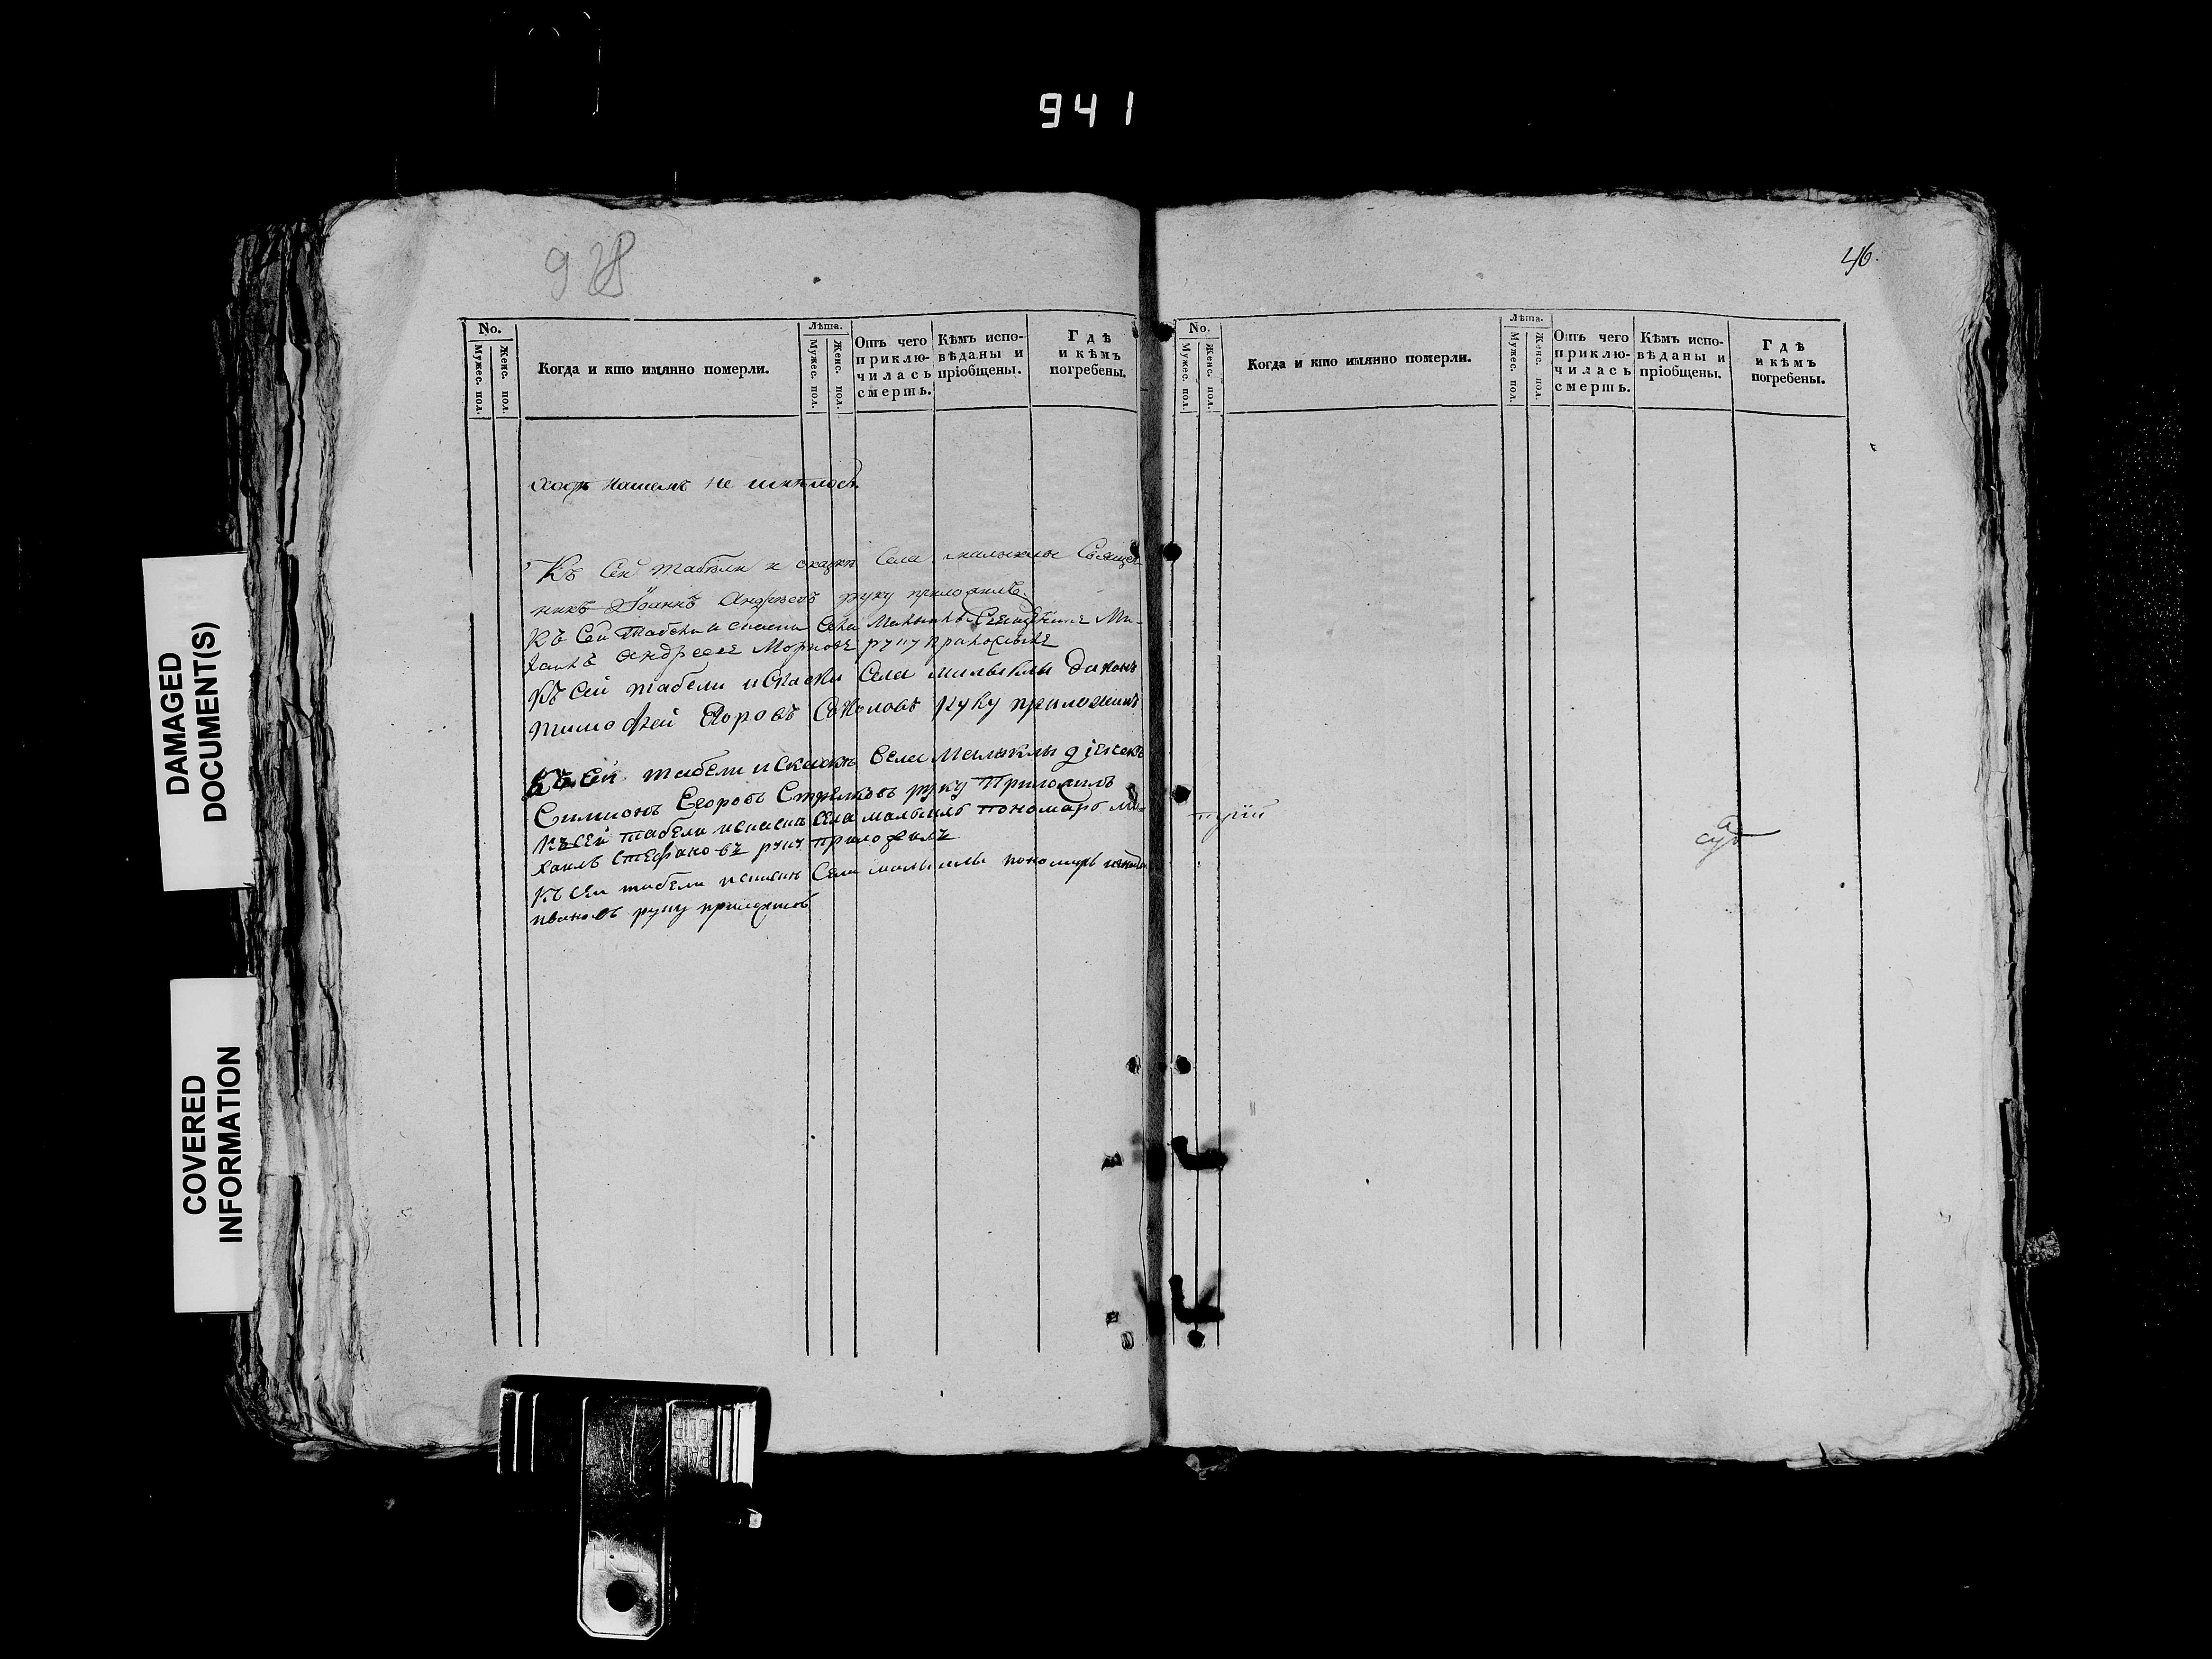 941
DAMAGED
DOCUMENT(S)
COVERED
INFORMATION
928
No.
Мужес. пол.
Женс. пол.
Когда и кто имянно померли.
Лѣта.
Мужес. пол.
Женс. пол.
Отъ чего приклю-чилась смерть.
Кѣмъ испо-вѣданы и пріобщены.
Гдѣ и кѣмъ погребены.
нашемъ не имѣлось
Къ сей табели и сказкѣ села малыклы Священ
никъ Іоаннъ Андреевъ руку приложилъ.
Къ сей табели и скаски села Малыклы Священникъ Ми-
хаилъ Андреевъ руку приложилъ
Къ сей табели и скаски села малыклы диконъ
тимофей Егоровъ Соколовъ руку приложилъ
Къ сей табели и скаскѣ села малыклы дiячекъ
Симионъ Егоровъ Стрелковъ руку Приложилъ
Къ сей табели и скаскѣ села малыклы пономарь Ми-
хаилъ Стефановъ руку приложилъ
Къ сей табели и скаскѣ села малыклы пономарь
ивановъ руку приложилъ
46.
No.
Мужес. пол.
Женс. пол.
Когда и кто имянно померли.
Лѣта.
Мужес. пол.
Женс. пол.
Отъ чего приклю-чилась смерть.
Кѣмъ испо-вѣданы и пріобщены.
Гдѣ и кѣмъ погребены.